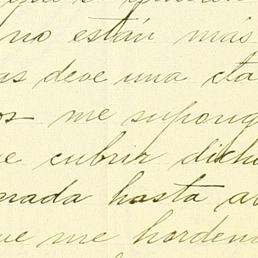 no están más
as deve una cta
os me supong
e cubrir dicho
nada hasta a
ue me hordene